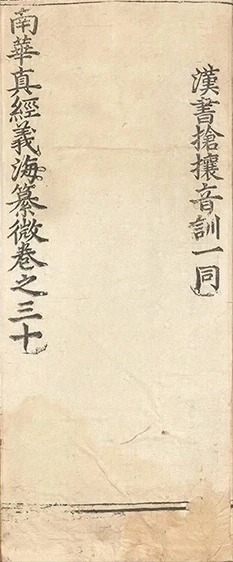 漢書搶攘音訓一同
南華真經義海纂微卷之三十